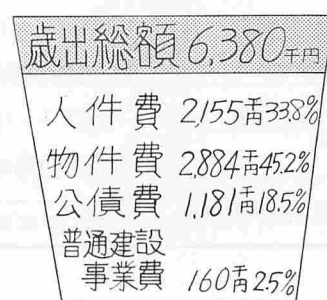 歳出総額 6,380千円
人件費 2,155千円 33.8%
物件費 2,884千円 45.2%
公債費 1,181千円 18.5%
普通建設
事業費 160千円 2.5%